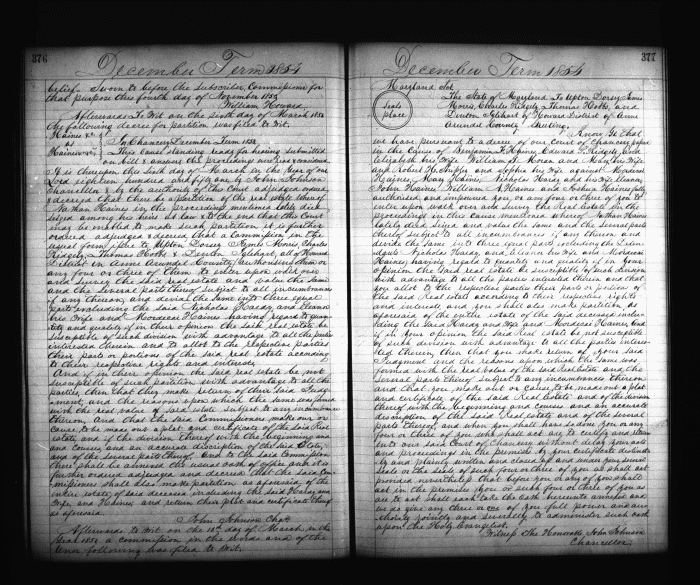 376
December Term 1854
belief. Sworn to before the Subscriber, Commissioner for
that purpose this fourth day of November 1853
William Howard
Afterwards To Wit on the sixth day of March 1851
the following decree for partition was filed to Wit.
Haines &c
vs
Haines &c
In Chancery December Term 1850
This Cause standing ready for hearing submitted
on bill & answers the proceedings were read & considered
It is thereupon this sixth day of March in the Year of our
Lord eighteen hundred and fifty one by John Johnson
Chancellor & by the authority of this Court adjudged ordered
& decreed that there be a partition of the real estate whereof
Nathan Haines in the proceedings mentioned lately died
seized among his heirs at law & to the end that this Court
may be enabled to make such partition it is further
ordered adjudged & decreed that a Commission in the
usual form issue to Upton Dorsey Amos Morris Charles
Ridgely, Thomas Hobbs & Denton Iglehart, all of Howard
District in Anne Arundel County authorising them or
any four or three of them to enter upon walk over
and survey the said real estate and value the same
and the several parts thereof subject to all incumbrances
if any thereon, and divide the same into three equal
parts excluding the said Nicholas Hardy and Eleanor
his Wife and Mordecai Haines having regard to quan
tity and quality if in their opinion the said real estate be
susceptible of such division with advantage to all the parties
interested therein, and to allot to the respective parties
their parts or portions of the said real estate according
to their respective rights and interests.
And if in their opinion the said real estate be not
susceptible of such partition with advantage to all the
parties, then that they make return of their said Judg
ment, and the reasons upon which the same was formed
with the real value of said estate subject to any incumbrance
thereon, And that the said Commissioners make out or
cause to be made out a plot and certificate of the said Real
estate, and if the division thereof with the beginning and
and courses and an accurate description of the said estate,
and of the several parts thereof, And to the said Commission
there shall be annexed the usual oath of office and it is
further ordered adjudged and decreed that the said Com
missioners shall also make partition as aforesaid of the
entire estate of said deceased including the said Hardy and
Wife, and Haines, and return their plot and certificate thereof
as aforesaid.
John Johnson Chanr
Afterwards to Wit on the 12th day of March, in the
Year 1851 a commission in the words and of the
tenor following was issued to Wit.
377
December Term 1854
Maryland Sct
seals
place
The State of Maryland To Upton Dorsey Amos
Morris, Charles Ridgely, Thomas Hobbs, and
Denton Iglehart of Howard District of Anne
Arundel County Greeting.
Know Ye that
we have pursuant to a decree of our Court of Chancery passed
in the Cause of Benjamin Haines, Edward Ridgely and
Elizabeth his Wife William H. Moran and Mary his Wife
and Robert H. and Sophia his Wife against Mordecai
Haines, Mary Haines, Nicholas Hardy and his Wife Eleanor,
John Haines, William A. Haines and Joshua Haines fully
authorised and impowered You or any four or three of you to
enter upon walk over and survey the Real estate in the
proceedings in this cause mentioned whereof Nathan Haines
lately died seized and value the same and the several parts
thereof subject to all incumbrances if any thereon and
divide the same into three equal parts excluding the Defen
dants Nicholas Hardy and Eleanor his Wife and Mordecai
Haines having regard to quantity and quality if in your
opinion the said real estate be susceptible of such division
with advantage to all the parties interested therein and that
you allot to the respective parties their parts or portions of
the said Real estate according to their respective rights
and interests and you shall also make partition as
aforesaid of the entire estate of the said deceased inclu
ding the said Hardy and Wife and Mordecai Haines, And
if in your opinion the said real estate be not susceptible
of such division with advantage to all the parties interes
ted therein, then that you make return of your said
Judgment and the reasons upon which the same was
formed with the real value of the said Real estate and the
several parts thereof subject to any incumbrances thereon
and that you make out or cause to be made out a plot
and certificate of the said Real Estate and of the division
thereof with the beginning and courses and an accurate
description of the said Real estate and of the several
parts thereof, and when you shall have so done you or any
four or three of you shall not delay to certify and return
into our said Court of Chancery without delay your acts
and proceedings in the premises by your certificate distinct
ly and plainly written and closed up and under your several
seals or the seals of such four or three of you as shall act
provided nevertheless that before you or any of you shall
act in the premises you or such four or three of you as
are to act shall each take the oath hereunto annexed and
we do give any three or one of you full power and au
thority jointly and severally to administer such oath
upon the Holy Evangelist.
Witness The Honorable John Johnson
Chancellor,